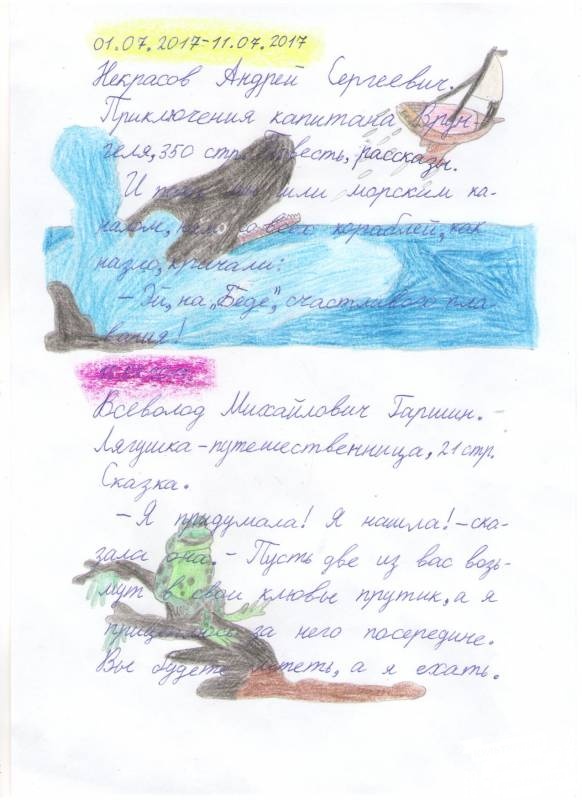 01.07.2017-11.07.2017
Некрасов Андрей Сергеевич.
Приключения капитана Врун-
геля, 350 стр. Повесть, рассказы.
И пока мы шли морским ка-
налом, с кораблей, как
назло, кричали:
- Эй, на „Беде", счастливого пла-
вания!
Всеволод Михайлович Гаршин. -
Лягушка-путешественница, 21 стр.
Сказка.
- Я придумала! Я нашла! - ска-
зала она. - Пусть две из вас возь-
мут в свои клювы прутик, а я
прицеплюсь за него посередине.
Вы будете лететь, а я ехать.